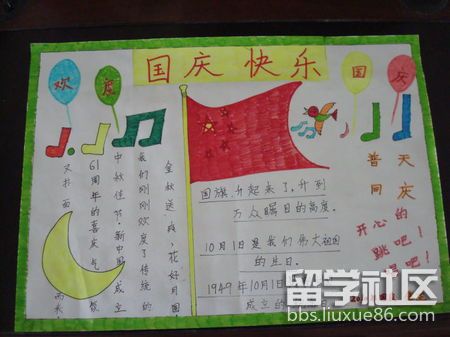 国庆快乐
欢度国庆
金秋送爽,花好月圆
我们刚刚欢度了传统的
中秋佳节,新中国成立
61周年的喜庆气
又扑面
国旗,升起来了,升到
万众瞩目的高度。
10月1日是我们伟大祖国
的生日。
1949年10月1日
成立的
普天
同庆
开心的
跳吧!
吧!
留学社区
bbs.liuxue86.com